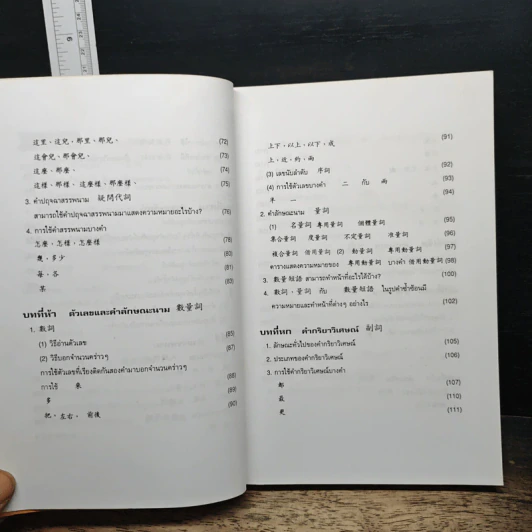 這里、這兒，那里、那兒。 (72)
這會兒、那會兒。 (73)
這麼、那麼。 (74)
這樣、那樣、這麼樣、那麼樣。 (75)
3. คำปฤจฉาสรรพนาม 疑問代詞
สามารถใช้คำปฤจฉาสรรพนามมาแสดงความหมายอะไรบ้าง? (76)
4. การใช้คำสรรพนามบางคำ
怎麼，怎樣，怎麼樣 (78)
幾，多少 (80)
每、各 (81)
某 (83)
บทที่ห้า ตัวเลขและคำลักษณะนาม 數量詞
1. 數詞
(1) วิธีอ่านตัวเลข (85)
(2) วิธีบอกจำนวนคร่าวๆ (87)
การใช้ตัวเลขที่เรียงติดกันสองคำมาบอกจำนวนคร่าวๆ
การใช้ 來 (88)
多 (89)
把，左右、前後 (90)
上下，以上，以下，成 (91)
上，近，約，兩 (92)
(3) เลขนับลำดับ 序詞 (93)
(4) การใช้ตัวเลขบางคำ 二 กับ 兩 (94)
半
2. คำลักษณะนาม 量詞
(1) 名量詞 專用量詞 個體量詞 (95)
集合量詞 度量詞 不定量詞 准量詞 (96)
複合量詞 借用量詞 (2) 動量詞 專用動量詞 (97)
ตารางแสดงความหมายของ 專用動量詞 บางคำ 借用動量詞 (98)
3. 數量短語 สามารถทำหน้าที่อะไรได้บ้าง? (100)
4. 數詞，量詞 กับ 數量短語 ในรูปคำซ้ำซ้อนมี
ความหมายและทำหน้าที่ต่างๆ อย่างไร (102)
บทที่หก คำกริยาวิเศษณ์ 副詞
1. ลักษณะทั่วไปของคำกริยาวิเศษณ์ (105)
2. ประเภทของคำกริยาวิเศษณ์ (106)
3. การใช้คำกริยาวิเศษณ์บางคำ
都 (107)
最 (110)
更 (111)